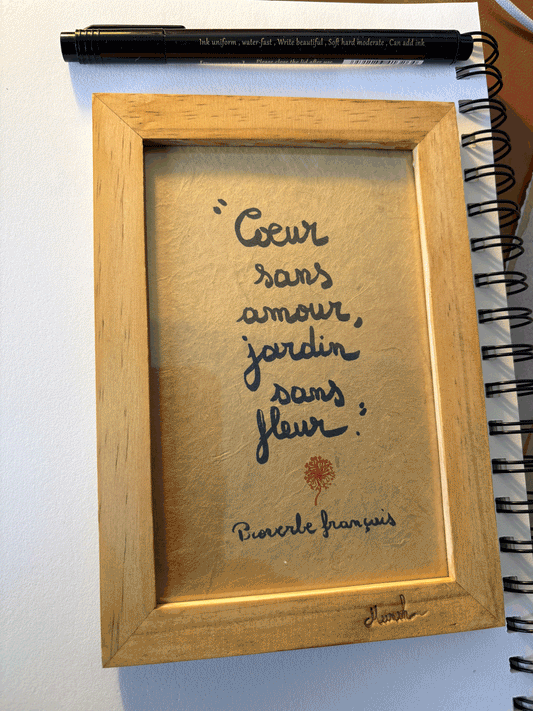 Ink uniform , water-fast , Write beautiful , Soft hard moderate , Can add ink
Please close the lid after
"Coeur
sans
amour,
jardin
sans
fleur."
Proverbe français